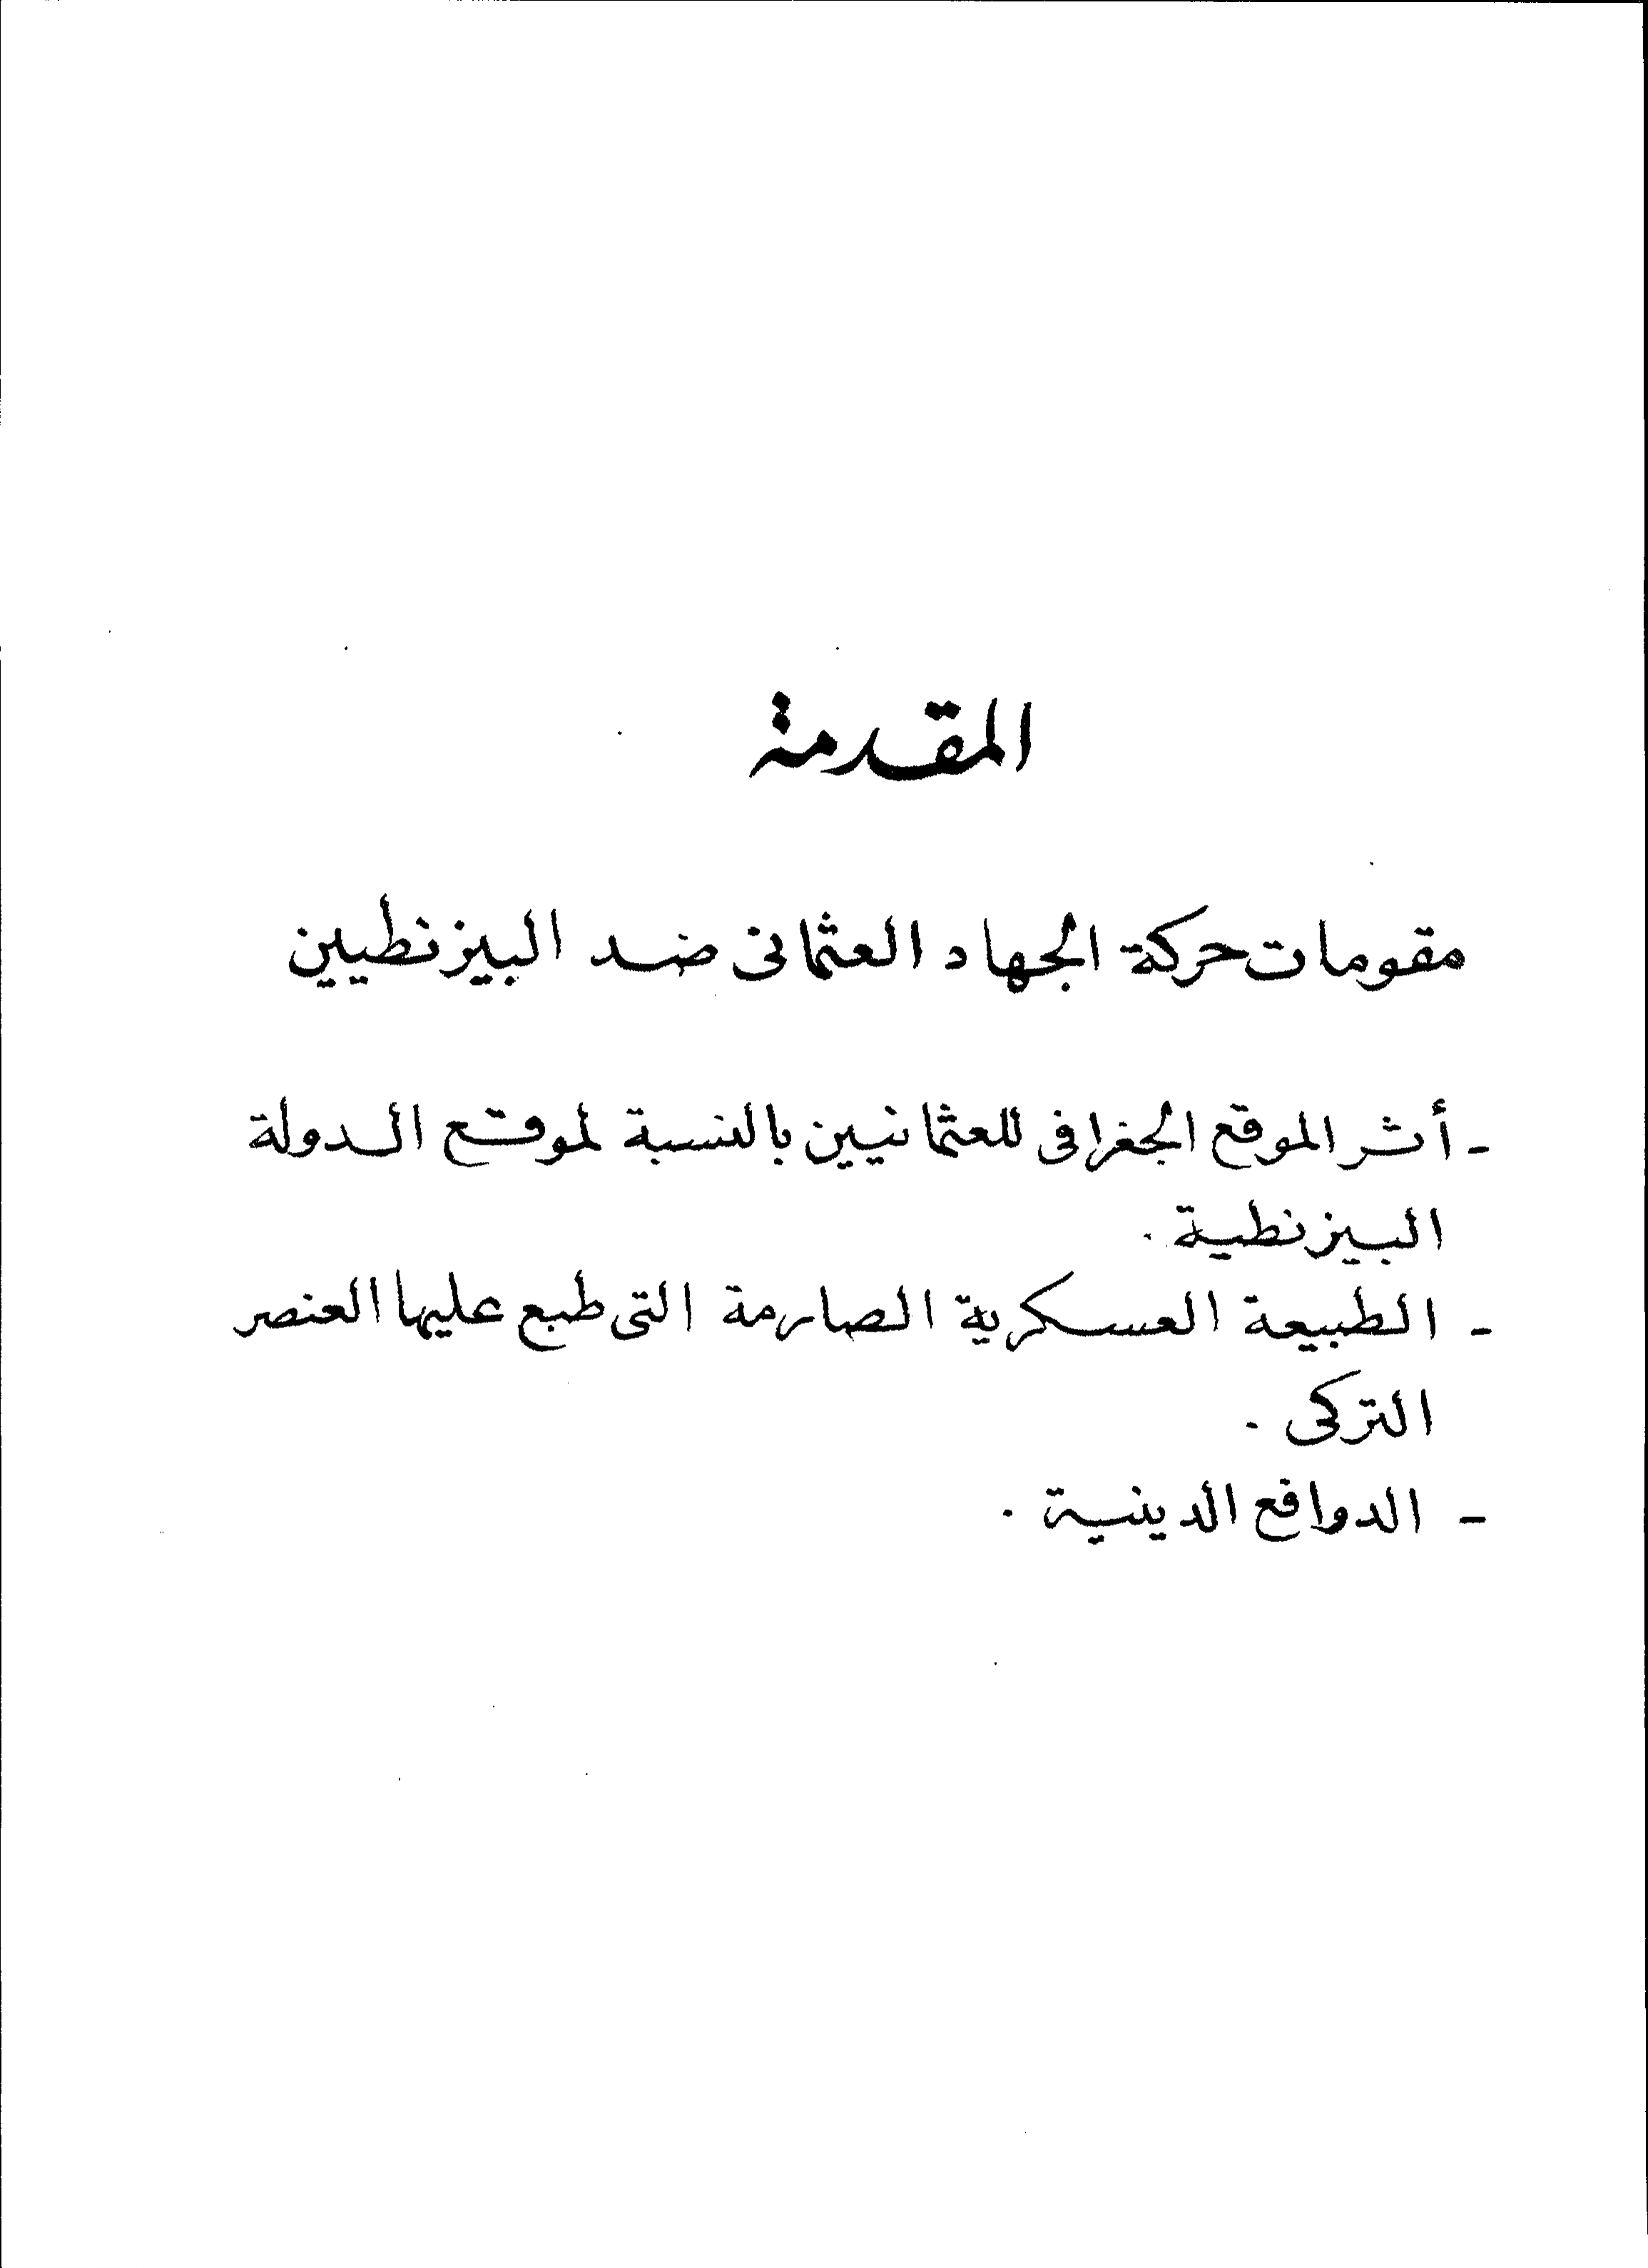 المقدمة
مقومات حركة الجهاد العثمانى ضد البيزنطيين
- أثر الموقع الجغرافى للعثمانيين بالنسبة لموقع الدولة
البيزنطية .
- الطبيعة العسكرية الصارمة التى طبع عليها العنصر
التركى .
- الدوافع الدينية .